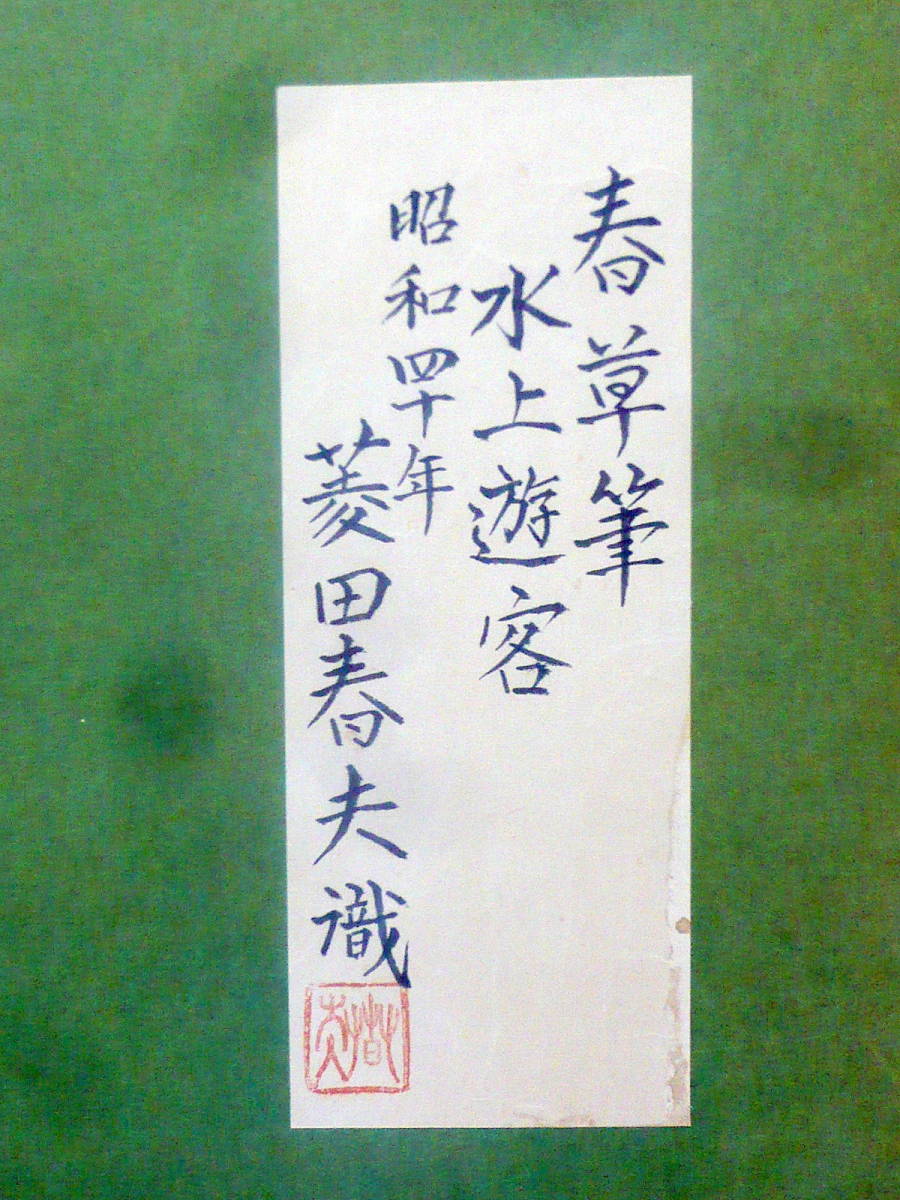 春草筆
水上遊客
昭和四十年
菱田春夫識
春夫